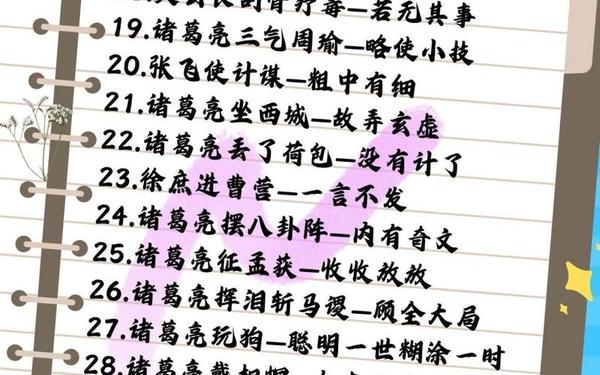 刮骨疗毒—若无其事
19.诸葛亮三气周瑜—略使小技
20.张飞使计谋—粗中有细
21.诸葛亮坐西城—故弄玄虚
22.诸葛亮丢了荷包—没有计了
23.徐庶进曹营—一言不发
24.诸葛亮摆八卦阵—内有奇文
25.诸葛亮征孟获—收收放放
26.诸葛亮挥泪斩马谡—顾全大局
27.诸葛亮玩狗—聪明一世糊涂一时
28.诸葛亮戴